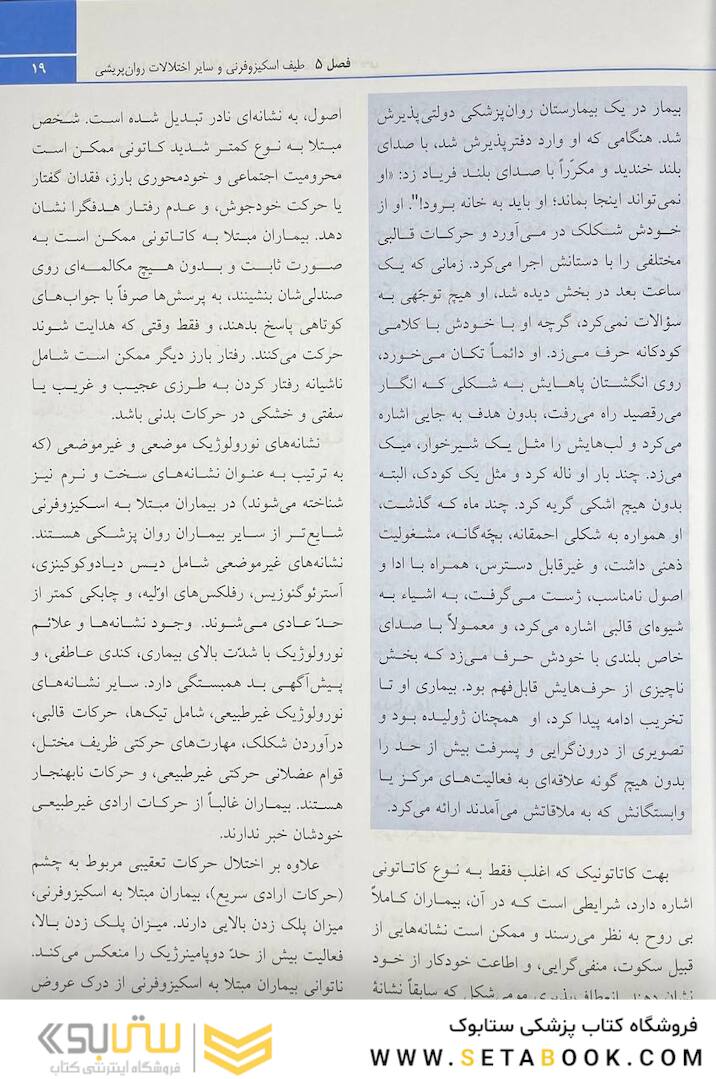 ۱۹
فصل ۵ طیف اسکیزوفرنی و سایر اختلالات روان‌پریشی
بیمار در یک بیمارستان روان‌پزشکی دولتی پذیرش
شد. هنگامی که او وارد دفتر پذیرش شد، با صدای
بلند خندید و مکرّراً با صدای بلند فریاد زد: «او
نمی‌تواند اینجا بماند؛ او باید به خانه برود!". او از
خودش شکلک در می‌آورد و حرکات قالبی
مختلفی را با دستانش اجرا می‌کرد. زمانی که یک
ساعت بعد در بخش دیده شد، او هیچ توجّهی به
سؤالات نمی‌کرد، گرچه او با خودش با کلامی
کودکانه حرف می‌زد. او دائماً تکان می‌خورد،
روی انگشتان پاهایش به شکلی که انگار
می‌رقصید راه می‌رفت، بدون هدف به جایی اشاره
می‌کرد و لب‌هایش را مثل یک شیرخوار، میک
می‌زد. چند بار او ناله کرد و مثل یک کودک، البته
بدون هیچ اشکی گریه کرد. چند ماه که گذشت،
او همواره به شکلی احمقانه، بچّه‌گانه، مشغولیت
ذهنی داشت، و غیرقابل دسترس، همراه با ادا و
اصول نامناسب، ژست می‌گرفت، به اشیاء به
شیوه‌ای قالبی اشاره می‌کرد، و معمولاً با صدای
خاص بلندی با خودش حرف می‌زد که بخش
ناچیزی از حرف‌هایش قابل‌فهم بود. بیماری او تا
تخریب ادامه پیدا کرد، او همچنان ژولیده بود و
تصویری از درون‌گرایی و پسرفت بیش از حد را
بدون هیچ گونه علاقه‌ای به فعالیت‌های مرکز یا
وابستگانش که به ملاقاتش می‌آمدند ارائه می‌کرد.
بهت کاتاتونیک که اغلب فقط به نوع کاتاتونی
اشاره دارد، شرایطی است که در آن، بیماران کاملاً
بی روح به نظر می‌رسند و ممکن است نشانه‌هایی از
قبیل سکوت، منفی‌گرایی، و اطاعت خودکار از خود
نشان دهند. انعطاف‌پذیری مومی‌شکل که سابقاً نشانۀ
اصول، به نشانه‌ای نادر تبدیل شده است. شخص
مبتلا به نوع کمتر شدید کاتونی ممکن است
محرومیت اجتماعی و خودمحوری بارز، فقدان گفتار
یا حرکت خودجوش، و عدم رفتار هدفگرا نشان
دهد. بیماران مبتلا به کاتاتونی ممکن است به
صورت ثابت و بدون هیچ مکالمه‌ای روی
صندلی‌شان بنشینند، به پرسش‌ها صرفاً با جواب‌های
کوتاهی پاسخ بدهند، و فقط وقتی که هدایت شوند
حرکت می‌کنند. رفتار بارز دیگر ممکن است شامل
ناشیانه رفتار کردن به طرزی عجیب و غریب یا
سفتی و خشکی در حرکات بدنی باشد.
نشانه‌های نورولوژیک موضعی و غیرموضعی (که
به ترتیب به عنوان نشانه‌های سخت و نرم نیز
شناخته می‌شوند) در بیماران مبتلا به اسکیزوفرنی
شایع‌تر از سایر بیماران روان پزشکی هستند.
نشانه‌های غیرموضعی شامل دیس دیادوکوکینزی،
آسترئوگنوزیس، رفلکس‌های اوّلیه، و چابکی کمتر از
حدّ عادی می‌شوند. وجود نشانه‌ها و علائم
نورولوژیک با شدّت بالای بیماری، کندی عاطفی، و
پیش‌آگهی بد همبستگی دارد. سایر نشانه‌های
نورولوژیک غیرطبیعی، شامل تیک‌ها، حرکات قالبی،
درآوردن شکلک، مهارت‌های حرکتی ظریف مختل،
قوام عضلانی حرکتی غیرطبیعی، و حرکات نابهنجار
هستند. بیماران غالباً از حرکات ارادی غیرطبیعی
خودشان خبر ندارند.
علاوه بر اختلال حرکات تعقیبی مربوط به چشم
(حرکات ارادی سریع)، بیماران مبتلا به اسکیزوفرنی،
میزان پلک زدن بالایی دارند. میزان پلک زدن بالا،
فعالیت بیش از حدّ دوپامینرژیک را منعکس می‌کند.
ناتوانی بیماران مبتلا به اسکیزوفرنی از درک عروض
فروشگاه کتاب پزشکی ستابوک
WWW.SETABOOK.COM
ستابوک
فروشگاه اینترنتی کتاب